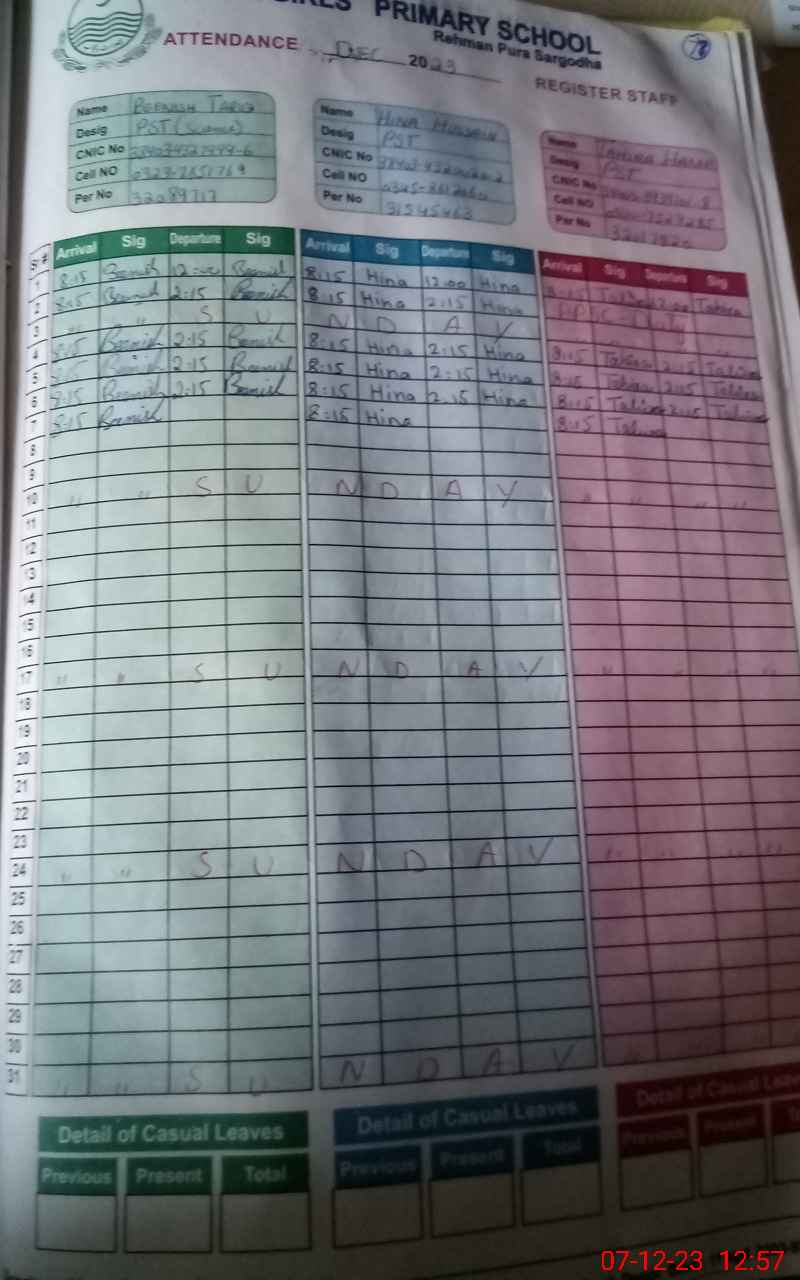 GIRLS PRIMARY SCHOOL
Rehman Pura Sargodha
ATTENDANCE Dec 2023
REGISTER STAFF
Name BEENISH TARIQ
Desig PST (Science)
CNIC No
Cell NO
Per No 32089717
Name HINA HUSSAIN
Desig PST
CNIC No
Cell NO
Per No 31545463
Name TAHIRA
Desig PST
CNIC No
Cell NO
Per No
Sr# Arrival Sig Departure Sig Arrival Sig Departure Sig Arrival Sig Departure Sig
1 8:15 Beenish 12:00 Beenish 8:15 Hina 12:00 Hina 8:15 Tahira 12:00 Tahira
2 8:15 Beenish 2:15 Beenish 8:15 Hina 2:15 Hina Duty
3 " " S U N D A Y " "
4 8:15 Beenish 2:15 Beenish 8:15 Hina 2:15 Hina 8:15 Tahira 2:15 Tahira
5 8:15 Beenish 2:15 Beenish 8:15 Hina 2:15 Hina 8:15 Tahira 2:15 Tahira
6 8:15 Beenish 2:15 Beenish 8:15 Hina 2:15 Hina 8:15 Tahira 2:15 Tahira
7 8:15 Beenish 8:15 Hina 8:15 Tahira
8
9
10 " " S U N D A Y " " " "
11
12
13
14
15
16
17 " " S U N D A Y " " " "
18
19
20
21
22
23
24 " " S U N D A Y " " " "
25
26
27
28
29
30
31 " " S U N D A Y "
Detail of Casual Leaves Detail of Casual Leaves Detail of Casual Leaves
Previous Present Total Previous Present Total Previous Present
07-12-23 12:57